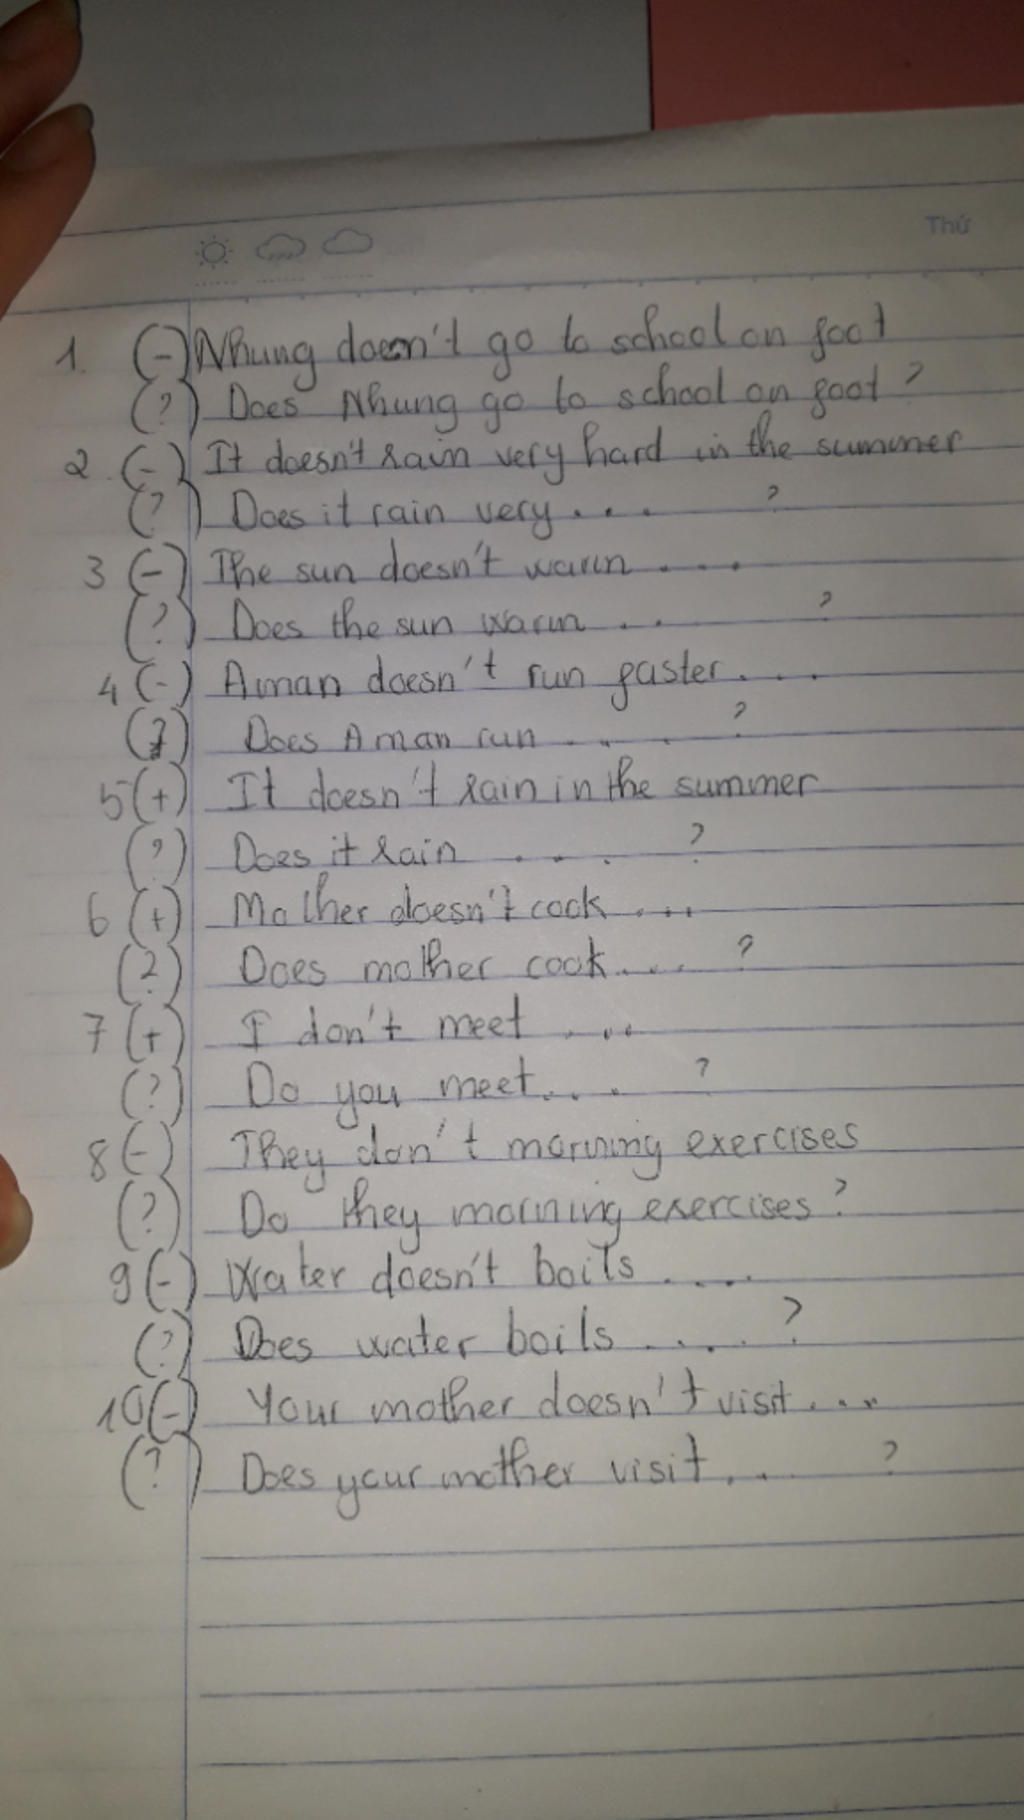 Thứ
1. (-) Nhung doesn't go to school on foot
(?) Does Nhung go to school on foot?
2. (-) It doesn't rain very hard in the summer
(?) Does it rain very... ?
3 (-) The sun doesn't warm ....
(?) Does the sun warm ... ?
4 (-) A man doesn't run faster....
(?) Does A man run .... ?
5 (+) It doesn't rain in the summer
(?) Does it rain .... ?
6 (+) Mother doesn't cook ....
(?) Does mother cook.... ?
7 (+) I don't meet ....
(?) Do you meet.... ?
8 (-) They don't morning exercises
(?) Do they morning exercises?
9 (-) Water doesn't boils ....
(?) Does water boils .... ?
10 (-) Your mother doesn't visit....
(?) Does your mother visit... ?